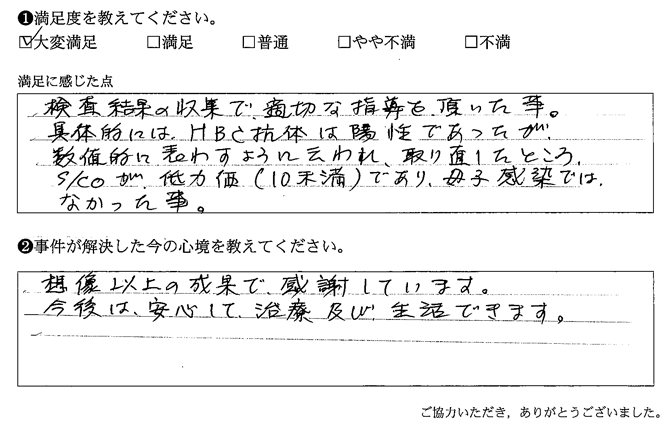 ❶満足度を教えてください。
☑大変満足 □満足 □普通 □やや不満 □不満
満足に感じた点
検査結果の収集で、適切な指導を頂いた事。
具体的には、HBc抗体は陽性であったが、
数値的に表わすように云われ、取り直したところ、
S/COが、低力価(10未満)であり、母子感染では、
なかった事。
❷事件が解決した今の心境を教えてください。
想像以上の成果で、感謝しています。
今後は、安心して、治療及び、生活できます。
ご協力いただき，ありがとうございました。